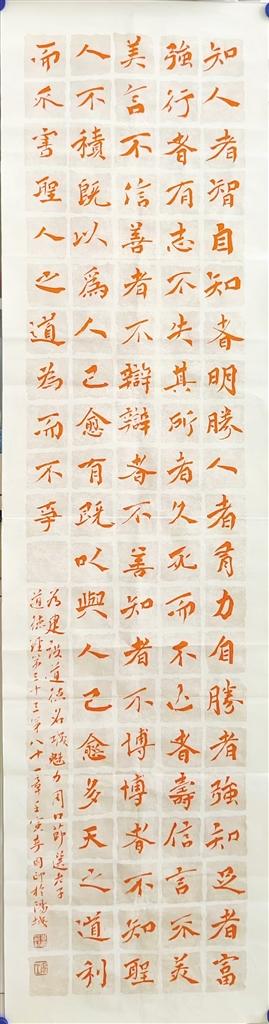 知人者智自知者明勝人者有力自勝者強知足者富
強行者有志不失其所者久死而不亡者壽信言不美
美言不信善者不辯辯者不善知者不博博者不知聖
人不積既以爲人己愈有既以與人己愈多天之道利
而不害聖人之道為而不爭
为建设道德名城魅力周口節选老子
道德經第三十三章八十一章壬寅